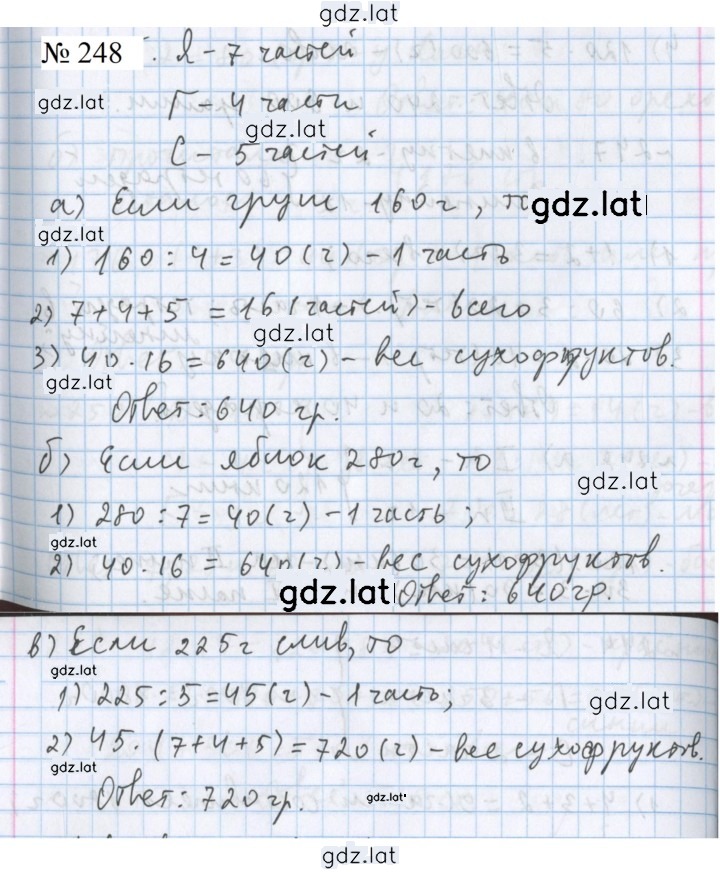 gdz.lat
№ 248 Я – 7 частей
gdz.lat Г – 4 части
gdz.lat
С – 5 частей
а) Если груш 160 г, то gdz.lat
gdz.lat
1) 160 : 4 = 40 (г) – 1 часть
2) 7 + 4 + 5 = 16 (частей) – всего
gdz.lat
3) 40 · 16 = 640 (г) – вес сухофруктов.
gdz.lat
Ответ: 640 гр.
б) Если яблок 280 г, то
gdz.lat
1) 280 : 7 = 40 (г) – 1 часть;
gdz.lat
2) 40 · 16 = 640 (г) – вес сухофруктов.
gdz.lat Ответ: 640 гр.
в) Если 225 г слив, то
gdz.lat
1) 225 : 5 = 45 (г) – 1 часть; gdz.lat
2) 45 · (7 + 4 + 5) = 720 (г) – вес сухофруктов.
gdz.lat
Ответ: 720 гр. gdz.lat
gdz.lat